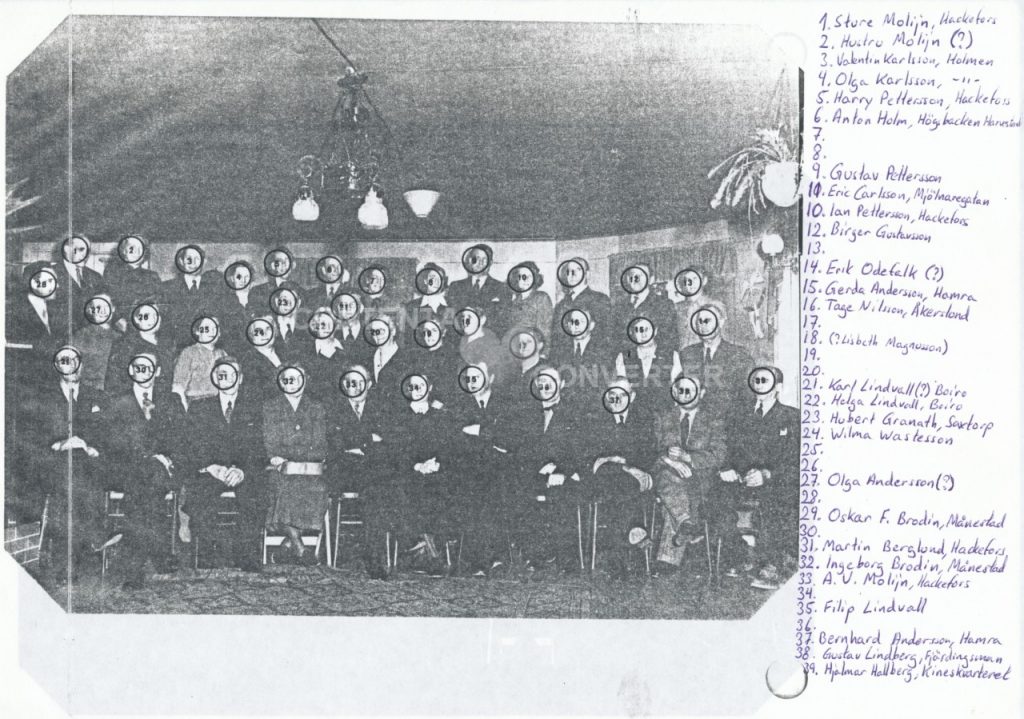 1. Sture Molijn, Hackefors
2. Hustru Molijn (?)
3. Valentin Karlsson, Holmen
4. Olga Karlsson, -"-
5. Harry Pettersson, Hackefors
6. Anton Holm, Högsbacken
7.
8.
9. Gustav Pettersson
11. Eric Carlsson, Mjölnaregatan
10. Ian Pettersson, Hackefors
12. Birger Gustavsson
13.
14. Erik Odefalk (?)
15. Gerda Andersson, Hamra
16. Tage Nilsson, Åkersland
17.
18. (?Lisbeth Magnusson)
19.
20.
21. Karl Lindvall(?) Boiro
22. Helga Lindvall, Boiro
23. Hubert Granath, Saxtorp
24. Wilma Wastesson
25.
26.
27. Olga Andersson(?)
28.
29. Oskar F. Brodin, Månestad
30.
31. Martin Berglund, Hackefors
32. Ingeborg Brodin, Månestad
33. A. V. Molijn, Hackefors
34.
35. Filip Lindvall
36.
37. Bernhard Andersson, Hamra
38. Gustav Lindberg, Fjärdingsman
39. Hjalmar Hallberg, Kineskvarteret
CONVERTER